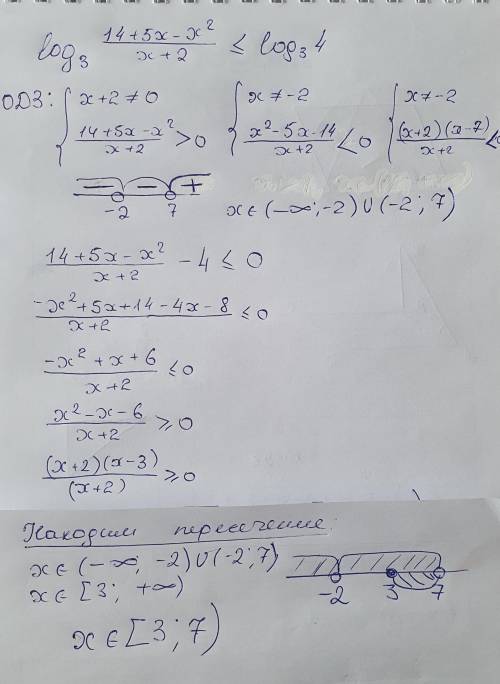 log₃ (14+5x-x²)/(x+2) ≤ log₃ 4
ОДЗ: { x+2≠0 { x≠-2 { x≠-2
(14+5x-x²)/(x+2) > 0 (x²-5x-14)/(x+2) < 0 ((x+2)(x-7))/(x+2) <
- - +
-2 7 x∈(-∞;-2)∪(-2;7)
(14+5x-x²)/(x+2) - 4 ≤ 0
(-x²+5x+14-4x-8)/(x+2) ≤ 0
(-x²+x+6)/(x+2) ≤ 0
(x²-x-6)/(x+2) ≥ 0
((x+2)(x-3))/(x+2) ≥ 0
Находим пересечение:
x∈(-∞; -2)∪(-2;7)
x∈[3; +∞)
-2 3 7
x∈[3;7)